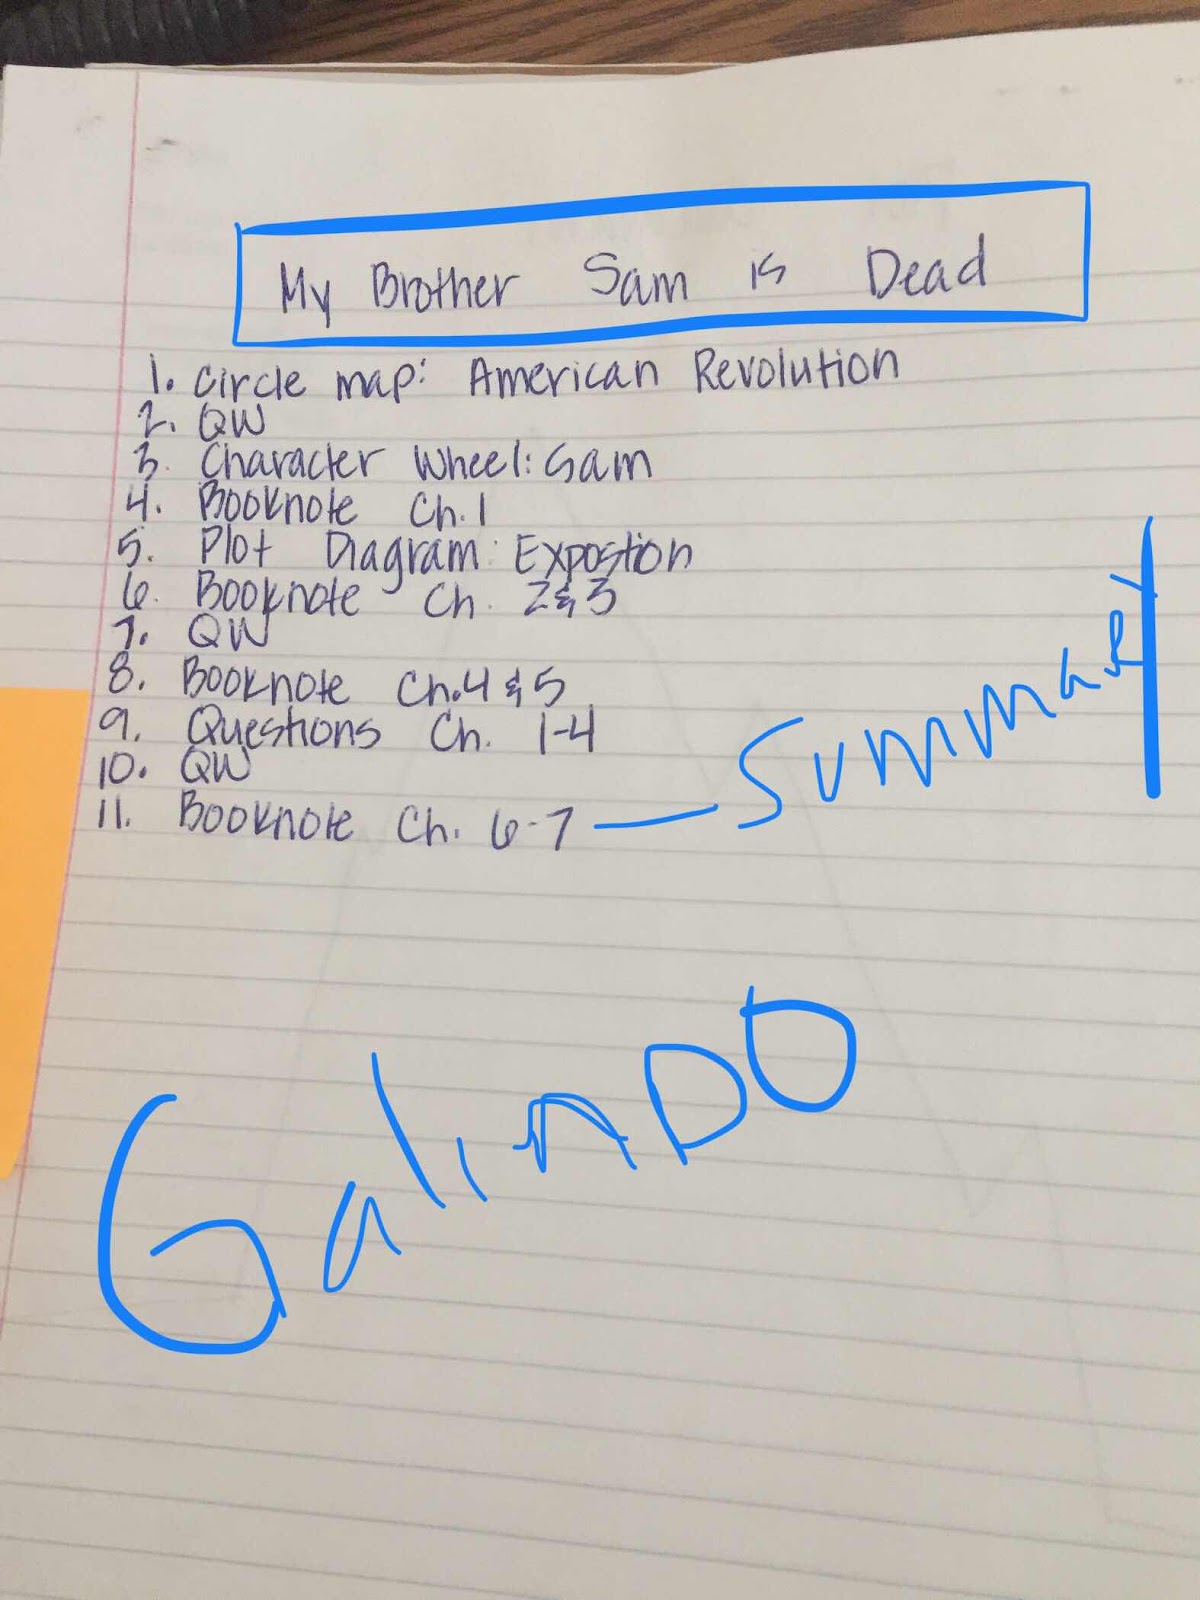 My Brother Sam is Dead
1. Circle map: American Revolution
2. QW
3. Character Wheel: Sam
4. Booknote Ch. 1
5. Plot Diagram: Expostion
6. Booknote Ch. 2 & 3
7. QW
8. Booknote Ch. 4 & 5
9. Questions Ch. 1-4
10. QW
11. Booknote Ch. 6-7 — Summary
GalinDO